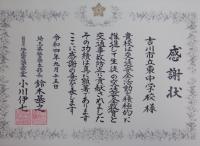 感謝状
吉川市立東中学校様
貴校は交通安全活動を積極的に
推進して生徒の交通安全教育と
交通事故防止に貢献されました
その功績は真に顕著であります
ここに感謝の意を表します
令和四年九月二十五日
吉川警察署長
小川伊七